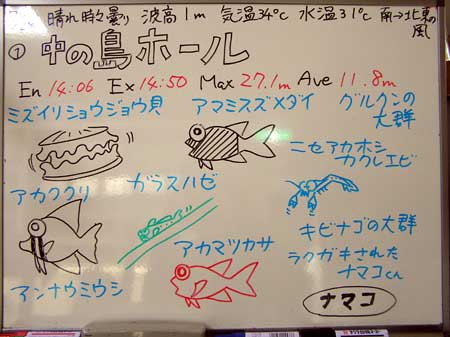 晴れ 時々曇り 波高1m 気温34℃ 水温31℃ 南→北東の風
① 中の島ホール
En 14:06 Ex 14:50 Max 27.1m Ave 11.8m
ミズイリショウジョウ貝
アマミスズメダイ
グルクンの
大群
ニセアカホシ
カクレエビ
アカククリ
ガラスハゼ
アカマツカサ
キビナゴの大群
ラクガキされた
ナマコくん
アンナウミウシ
ナマコ